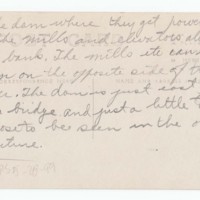 dam where they get power
the mills and elivators al
bank. The mills etc can
on on the opposite side of t
ce. The dam is just east
bridge and just a little t
ose to bee seen in the o
cture.